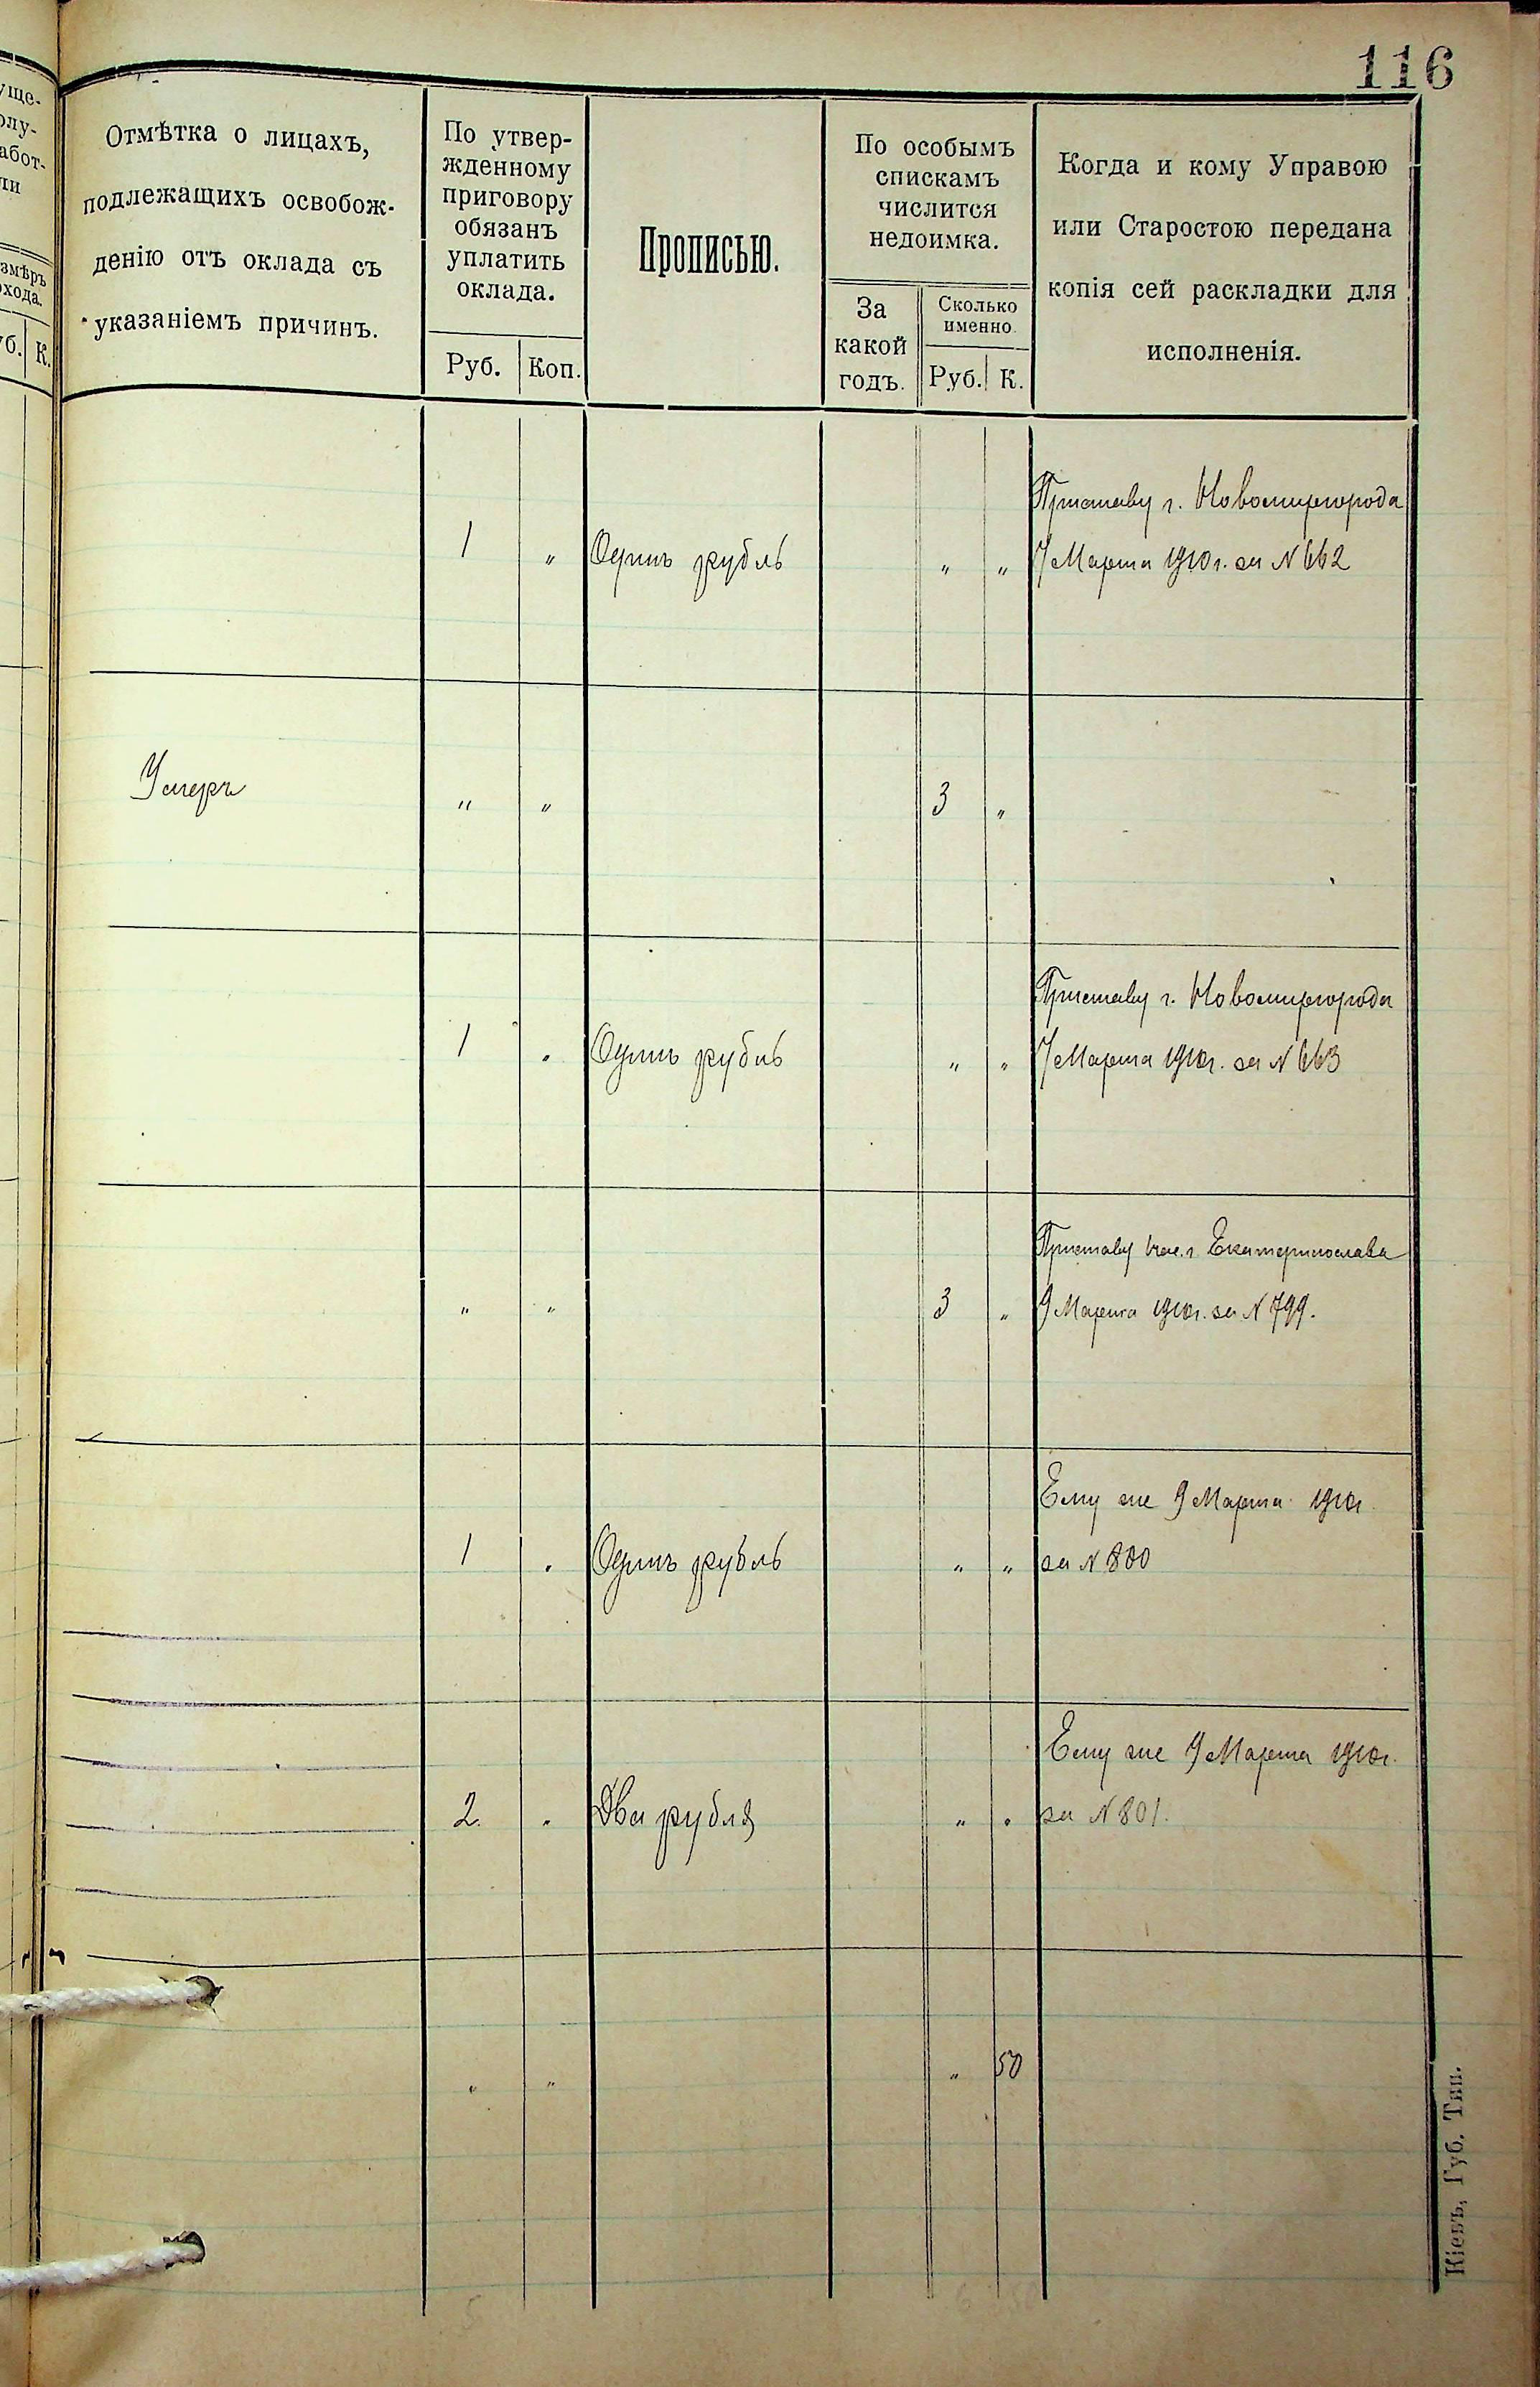 116
уще-
олу-
абот-
ли
змѣръ
охода.
уб. К.
Отмѣтка о лицахъ,
подлежащихъ освобож-
денію отъ оклада съ
указаніемъ причинъ.
По утвер-
жденному
приговору
обязанъ
уплатить
оклада.
Руб. Коп.
Прописью.
По особымъ
спискамъ
числится
недоимка.
За
какой
годъ.
Сколько
именно.
Руб. К.
Когда и кому Управою
или Старостою передана
копія сей раскладки для
исполненія.
Приставу г. Новомиргорода
1 " Одинъ рубль " " 7 Марта 1910 г. за N 662
Умеръ " " 3 "
Приставу г. Новомиргорода
1 " Одинъ рубль " " 7 Марта 1910 г. за N 663
Приставу г. Екатеринослава
" " 3 " 9 Марта 1910 г. за N 799.
Ему же 9 Марта 1910 г.
1 " Одинъ рубль " " за N 800
Ему же 9 Марта 1910 г.
2. " Два рубля " " за N 801.
" " " 50
5 6 50
Кіевъ, Губ. Тип.